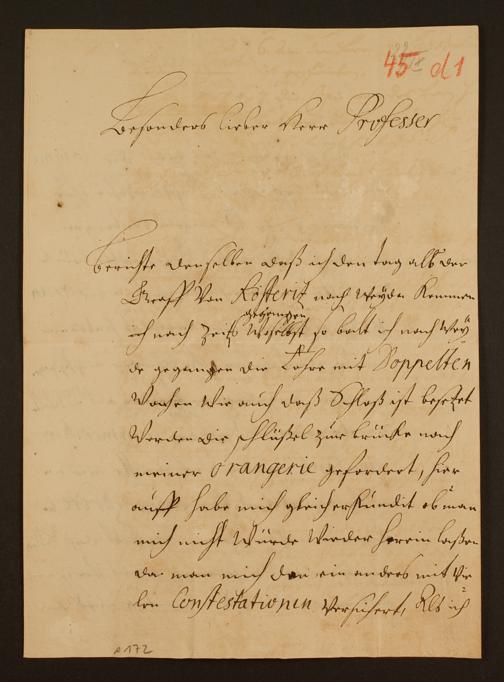 45 d1
Besonders lieber Herr Professer
Berichte denselben daß ich den tag alß der
Graff Von Kösteritz nach Weyda Kommen
gegangen
ich nach Zeitz Woselbst so balt ich nach Wey
de gegangen die Thore mit Doppelten
Wachen Wie auch daß Schloß ist besetzet
Worden die schlüßel zur brücke nach
meiner Orangerie gefordert, hier
auff habe mich gleich erkündit ob man
mich nicht Würde Wieder herein laßen
da man mich den ein anders mit Vie
len Contestationen Versichert, Alß ich
A172